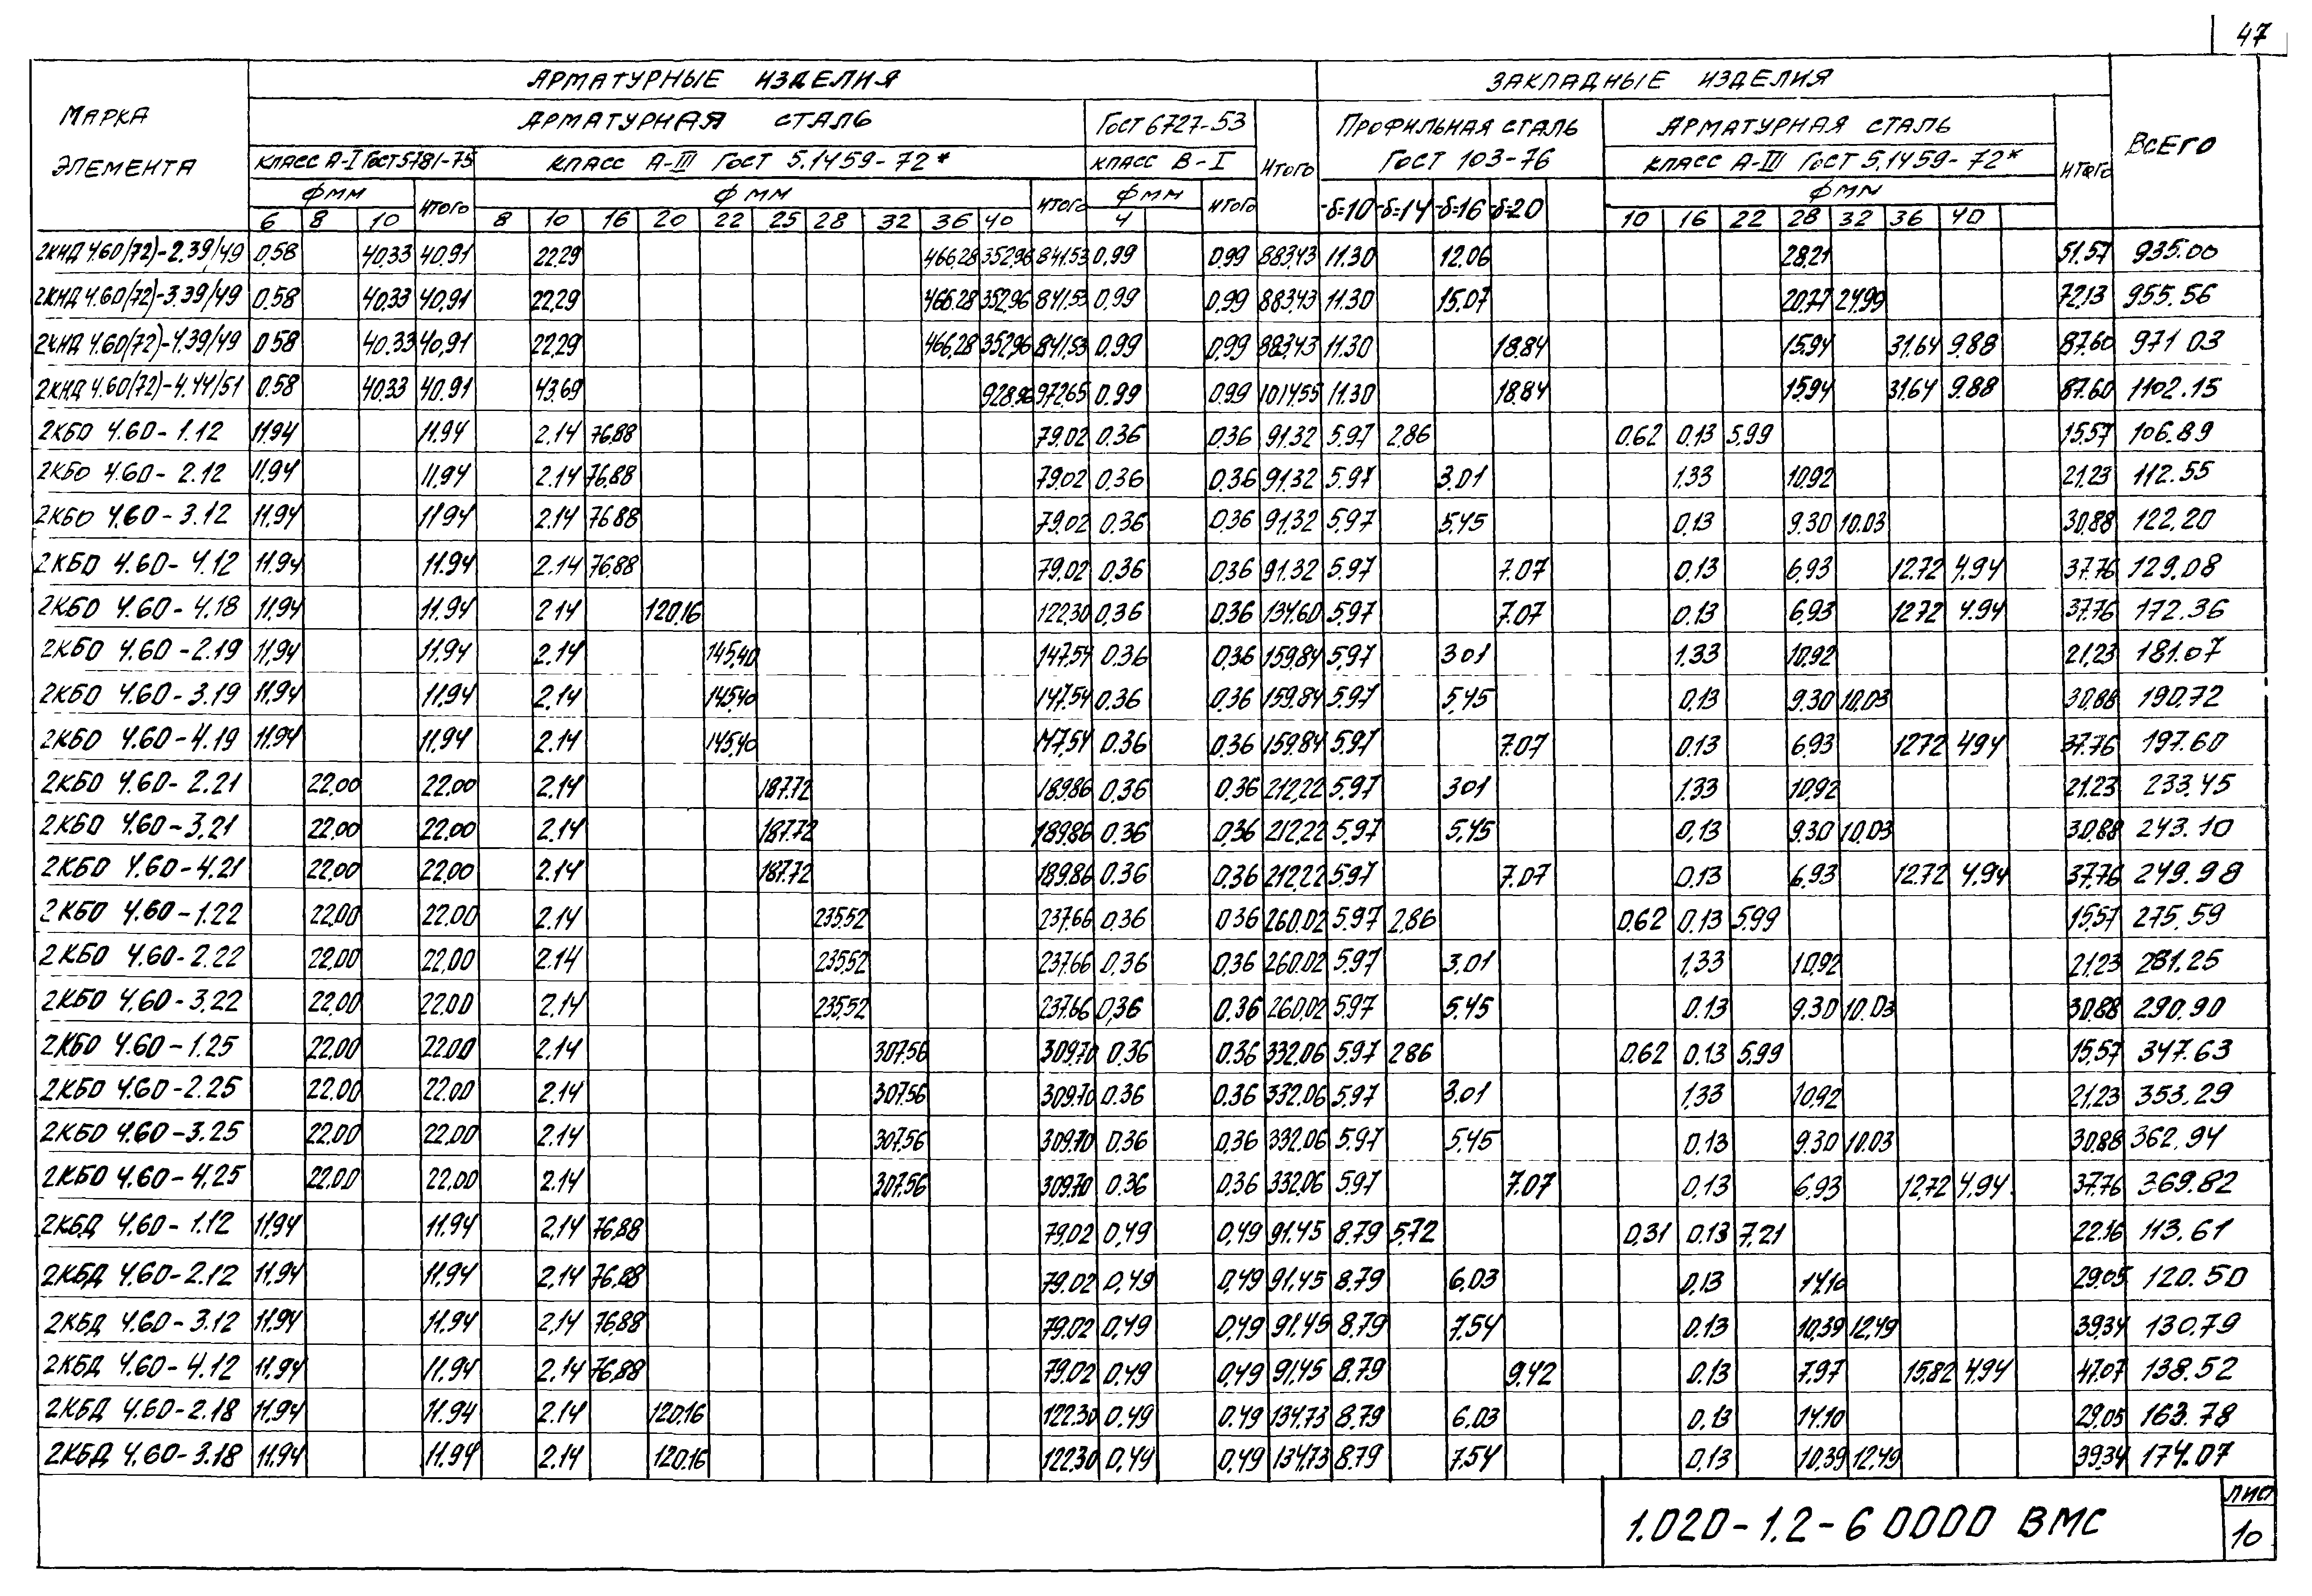 47
АРМАТУРНЫЕ ИЗДЕЛИЯ ЗАКЛАДНЫЕ ИЗДЕЛИЯ
МАРКА ЭЛЕМЕНТА АРМАТУРНАЯ СТАЛЬ ГОСТ 6727-53 ИТОГО ПРОФИЛЬНАЯ СТАЛЬ АРМАТУРНАЯ СТАЛЬ ИТОГО ВСЕГО
КЛАСС А-I ГОСТ 5781-75 КЛАСС А-III ГОСТ 5.1459-72* КЛАСС В-I ГОСТ 103-76 КЛАСС А-III ГОСТ 5.1459-72*
ФММ ИТОГО ФММ ИТОГО ФММ ИТОГО -δ=10 -δ=14 -δ=16 -δ=20 ФММ
6 8 10 8 10 16 20 22 25 28 32 36 40 4 10 16 22 28 32 36 40
2КНД 4.60(72)-2.39/49 0.58 40.33 40.91 22.29 466.28 352.96 841.53 0.99 0.99 883.43 11.30 12.06 28.21 51.57 935.00
2КНД 4.60(72)-3.39/49 0.58 40.33 40.91 22.29 466.28 352.96 841.53 0.99 0.99 883.43 11.30 15.07 20.77 24.99 72.13 955.56
2КНД 4.60(72)-4.39/49 0.58 40.33 40.91 22.29 466.28 352.96 841.53 0.99 0.99 883.43 11.30 18.84 15.94 31.64 9.88 87.60 971 03
2КНД 4.60(72)-4.44/51 0.58 40.33 40.91 43.69 928.96 972.65 0.99 0.99 1014.55 11.30 18.84 15.94 31.64 9.88 87.60 1102.15
2КБО 4.60-1.12 11.94 11.94 2.14 76.88 79.02 0.36 0.36 91.32 5.97 2.86 0.62 0.13 5.99 15.57 106.89
2КБО 4.60-2.12 11.94 11.94 2.14 76.88 79.02 0.36 0.36 91.32 5.97 3.01 1.33 10.92 21.23 112.55
2КБО 4.60-3.12 11.94 11.94 2.14 76.88 79.02 0.36 0.36 91.32 5.97 5.45 0.13 9.30 10.03 30.88 122.20
2КБО 4.60-4.12 11.94 11.94 2.14 76.88 79.02 0.36 0.36 91.32 5.97 7.07 0.13 6.93 12.72 4.94 37.76 129.08
2КБО 4.60-4.18 11.94 11.94 2.14 120.16 122.30 0.36 0.36 134.60 5.97 7.07 0.13 6.93 12.72 4.94 37.76 172.36
2КБО 4.60-2.19 11.94 11.94 2.14 145.40 147.54 0.36 0.36 159.84 5.97 3.01 1.33 10.92 21.23 181.07
2КБО 4.60-3.19 11.94 11.94 2.14 145.40 147.54 0.36 0.36 159.84 5.97 5.45 0.13 9.30 10.03 30.88 190.72
2КБО 4.60-4.19 11.94 11.94 2.14 145.40 147.54 0.36 0.36 159.84 5.97 7.07 0.13 6.93 12.72 4.94 37.76 197.60
2КБО 4.60-2.21 22.00 22.00 2.14 187.72 189.86 0.36 0.36 212.22 5.97 3.01 1.33 10.92 21.23 233.45
2КБО 4.60-3.21 22.00 22.00 2.14 187.72 189.86 0.36 0.36 212.22 5.97 5.45 0.13 9.30 10.03 30.88 243.10
2КБО 4.60-4.21 22.00 22.00 2.14 187.72 189.86 0.36 0.36 212.22 5.97 7.07 0.13 6.93 12.72 4.94 37.76 249.98
2КБО 4.60-1.22 22.00 22.00 2.14 235.52 237.66 0.36 0.36 260.02 5.97 2.86 0.62 0.13 5.99 15.57 275.59
2КБО 4.60-2.22 22.00 22.00 2.14 235.52 237.66 0.36 0.36 260.02 5.97 3.01 1.33 10.92 21.23 281.25
2КБО 4.60-3.22 22.00 22.00 2.14 235.52 237.66 0.36 0.36 260.02 5.97 5.45 0.13 9.30 10.03 30.88 290.90
2КБО 4.60-1.25 22.00 22.00 2.14 307.56 309.70 0.36 0.36 332.06 5.97 2.86 0.62 0.13 5.99 15.57 347.63
2КБО 4.60-2.25 22.00 22.00 2.14 307.56 309.70 0.36 0.36 332.06 5.97 3.01 1.33 10.92 21.23 353.29
2КБО 4.60-3.25 22.00 22.00 2.14 307.56 309.70 0.36 0.36 332.06 5.97 5.45 0.13 9.30 10.03 30.88 362.94
2КБО 4.60-4.25 22.00 22.00 2.14 307.56 309.70 0.36 0.36 332.06 5.97 7.07 0.13 6.93 12.72 4.94 37.76 369.82
2КБД 4.60-1.12 11.94 11.94 2.14 76.88 79.02 0.49 0.49 91.45 8.79 5.72 0.31 0.13 7.21 22.16 113.61
2КБД 4.60-2.12 11.94 11.94 2.14 76.88 79.02 0.49 0.49 91.45 8.79 6.03 0.13 14.10 29.05 120.50
2КБД 4.60-3.12 11.94 11.94 2.14 76.88 79.02 0.49 0.49 91.45 8.79 7.54 0.13 10.39 12.49 39.34 130.79
2КБД 4.60-4.12 11.94 11.94 2.14 76.88 79.02 0.49 0.49 91.45 8.79 9.42 0.13 7.97 15.82 4.94 47.07 138.52
2КБД 4.60-2.18 11.94 11.94 2.14 120.16 122.30 0.49 0.49 134.73 8.79 6.03 0.13 14.10 29.05 163.78
2КБД 4.60-3.18 11.94 11.94 2.14 120.16 122.30 0.49 0.49 134.73 8.79 7.54 0.13 10.39 12.49 39.34 174.07
1.020-1.2-6 0000 ВМС
ЛИСТ
10